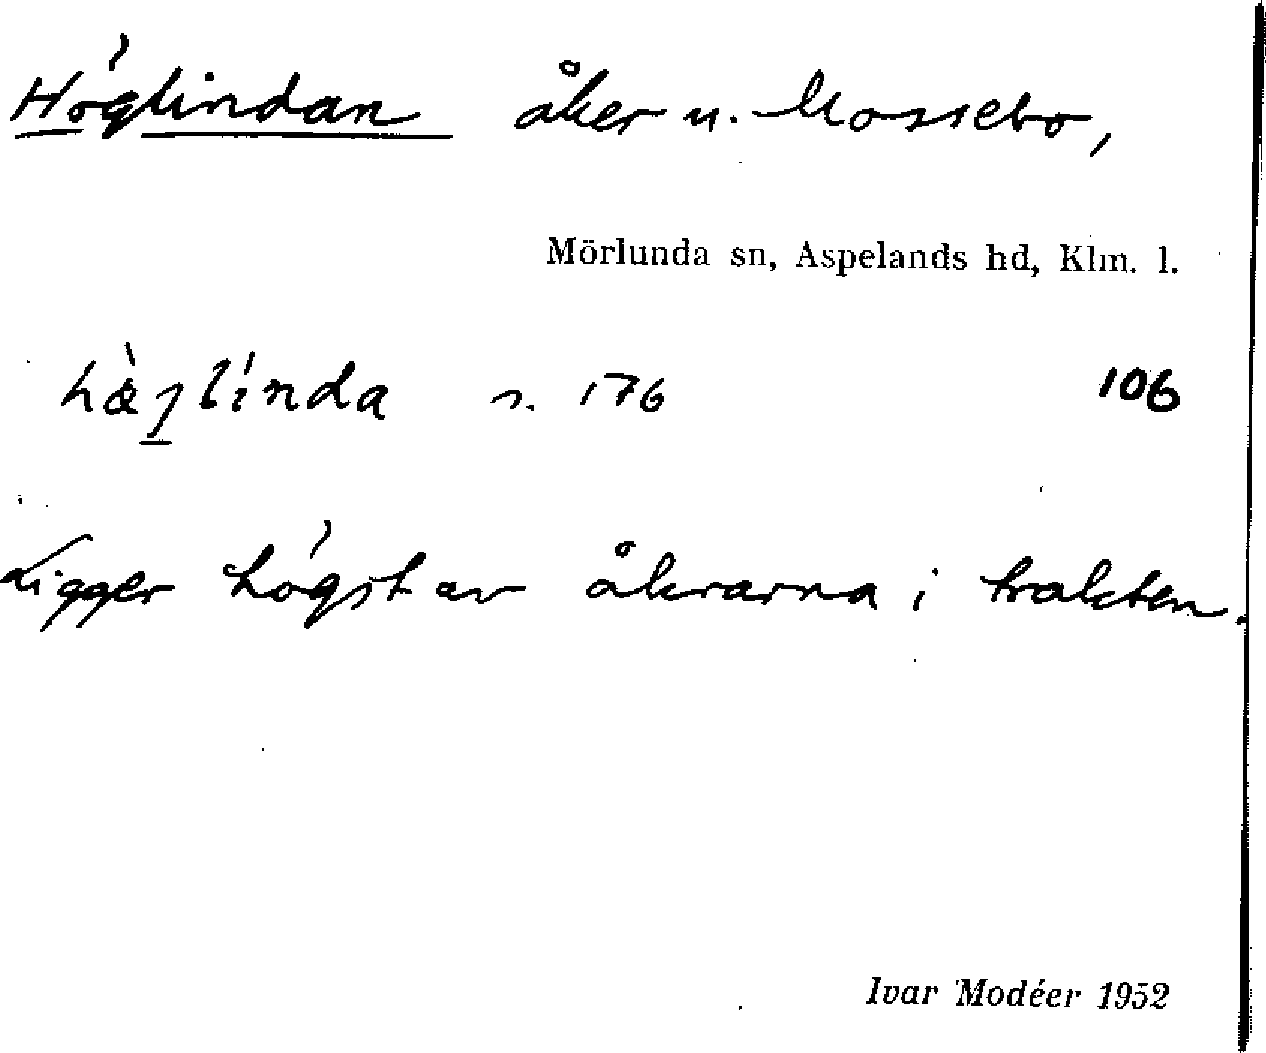 Höglindan åker u. Mossebo,
Mörlunda sn, Aspelands hd, Klm. l.
hö̀glínda s. 176 106
Ligger högst av åkrarna i trakten.
Ivar Modéer 1952